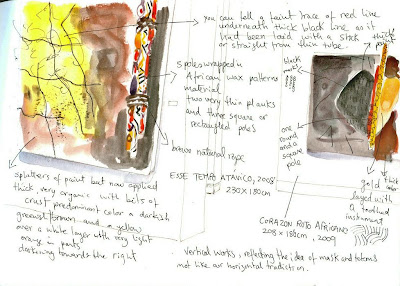 you can tell a faint trace of red line
underneath thick black line as if
it had been laid with a stick
or straight from thin tube.
thick
black
marks
5 poles wrapped in
African wax patterns
material
two very thin planks
and three square or
rectangled poles
one
round
and a
square
pole
brown natural rope
ESSE TEMPO ATAVICO, 2008
230 x 180cm
splutters of paint but now applied
thick, very organic with bits of
crust predominant color a darkish
greenish/brown and a yellow
over a white layer with very light
orange in parts
darkening towards the right
gold thick color
layed with
a toothed
instrument
CORAZON ROTO AFRICANO
208 x 186cm, 2009
vertical works, reflecting the idea of mask and totems
not like our horizontal tradiction.